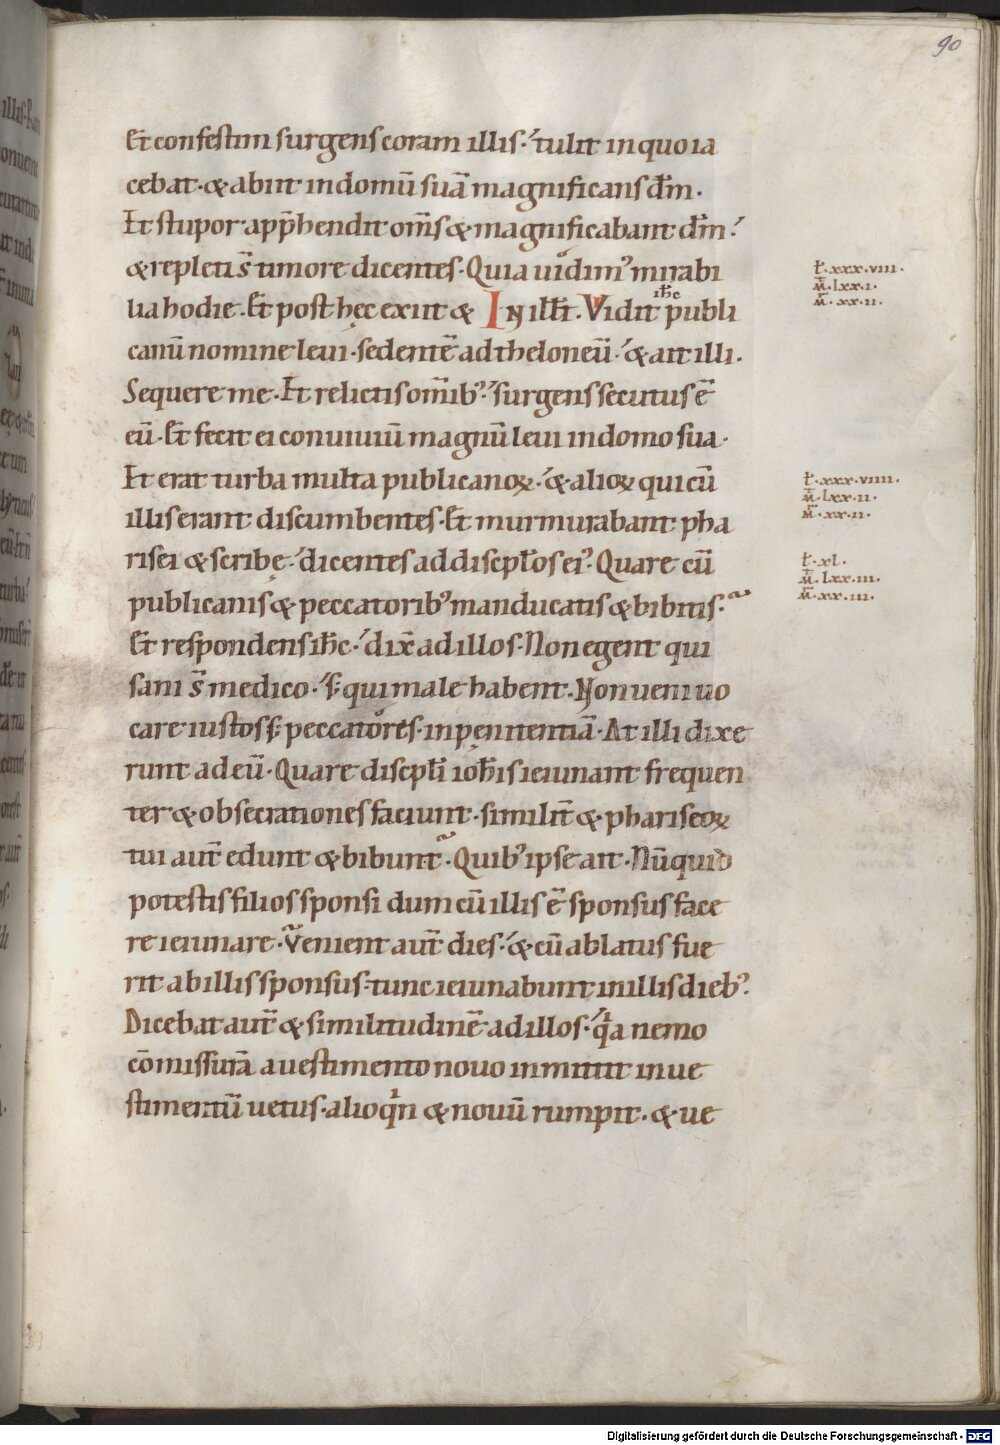 90
Et confestim surgens coram illis·́ tulit in quo ia
cebat· & abiit in domū suā magnificans d̄m·
Et stupor app̄hendit om̄s & magnificabant d̄m·́
& repleti s̄ timore dicentes· Quia uidim᾽ mirabi
lia hodie· Et post hęc exiit & In ill̄t· Vidit ih̄c publi
canū nomine leui· sedentē ad theloneū·́ & ait illi·
Sequere me· Et relictis om̄ib᾽·́ surgens secutus ē
eū· Et fecit ei conuiuiū magnū leui in domo sua·
Et erat turba multa publicanoꝝ·́ & alioꝝ qui cū
illis erant discumbentes· Et murmurabant pha
risei & scribę·́ dicentes ad discpl̄os ei᾽· Quare cū
publicanis & peccatorib᾽ manducatis & bibitis·~
Et respondens ih̄c·́ dix̄ ad illos· Non egent qui
sani s̄ medico·́ s; qui male habent· Non ueni uo
care iustos s; peccatores· in pęnitentiā· At illi dixe
runt ad eū· Quare discpl̄i ioh̄is ieiunant frequen
ter & obsecrationes faciunt· similit̄ & phariseoꝝ
tui aut̄ edunt & bibunt·~ Quib᾽ ipse ait· Nūquid
potestis filios sponsi dum cū illis ē sponsus face
re ieiunare·~ Venient aut̄ dies·́ & cū ablatus fue
rit ab illis sponsus· tunc ieiunabunt in illis dieb᾽·
Dicebat aut̄ & similitudinē ad illos·́ qͥa nemo
cōmissurā a uestimento nouo inmittit in ue
stimentū uetus· alioqͥn & nouū rumpit· & ue
ł·xxx·viii·
m̄·lxx·i·
m̄·xx·ii·
ł·xxx·viiii·
m̄·lxx·ii·
m̄·xx·ii·
ł·xl·
m̄·lxx·iii·
m̄·xx·iii·
Digitalisierung gefördert durch die Deutsche Forschungsgemeinschaft - DFG